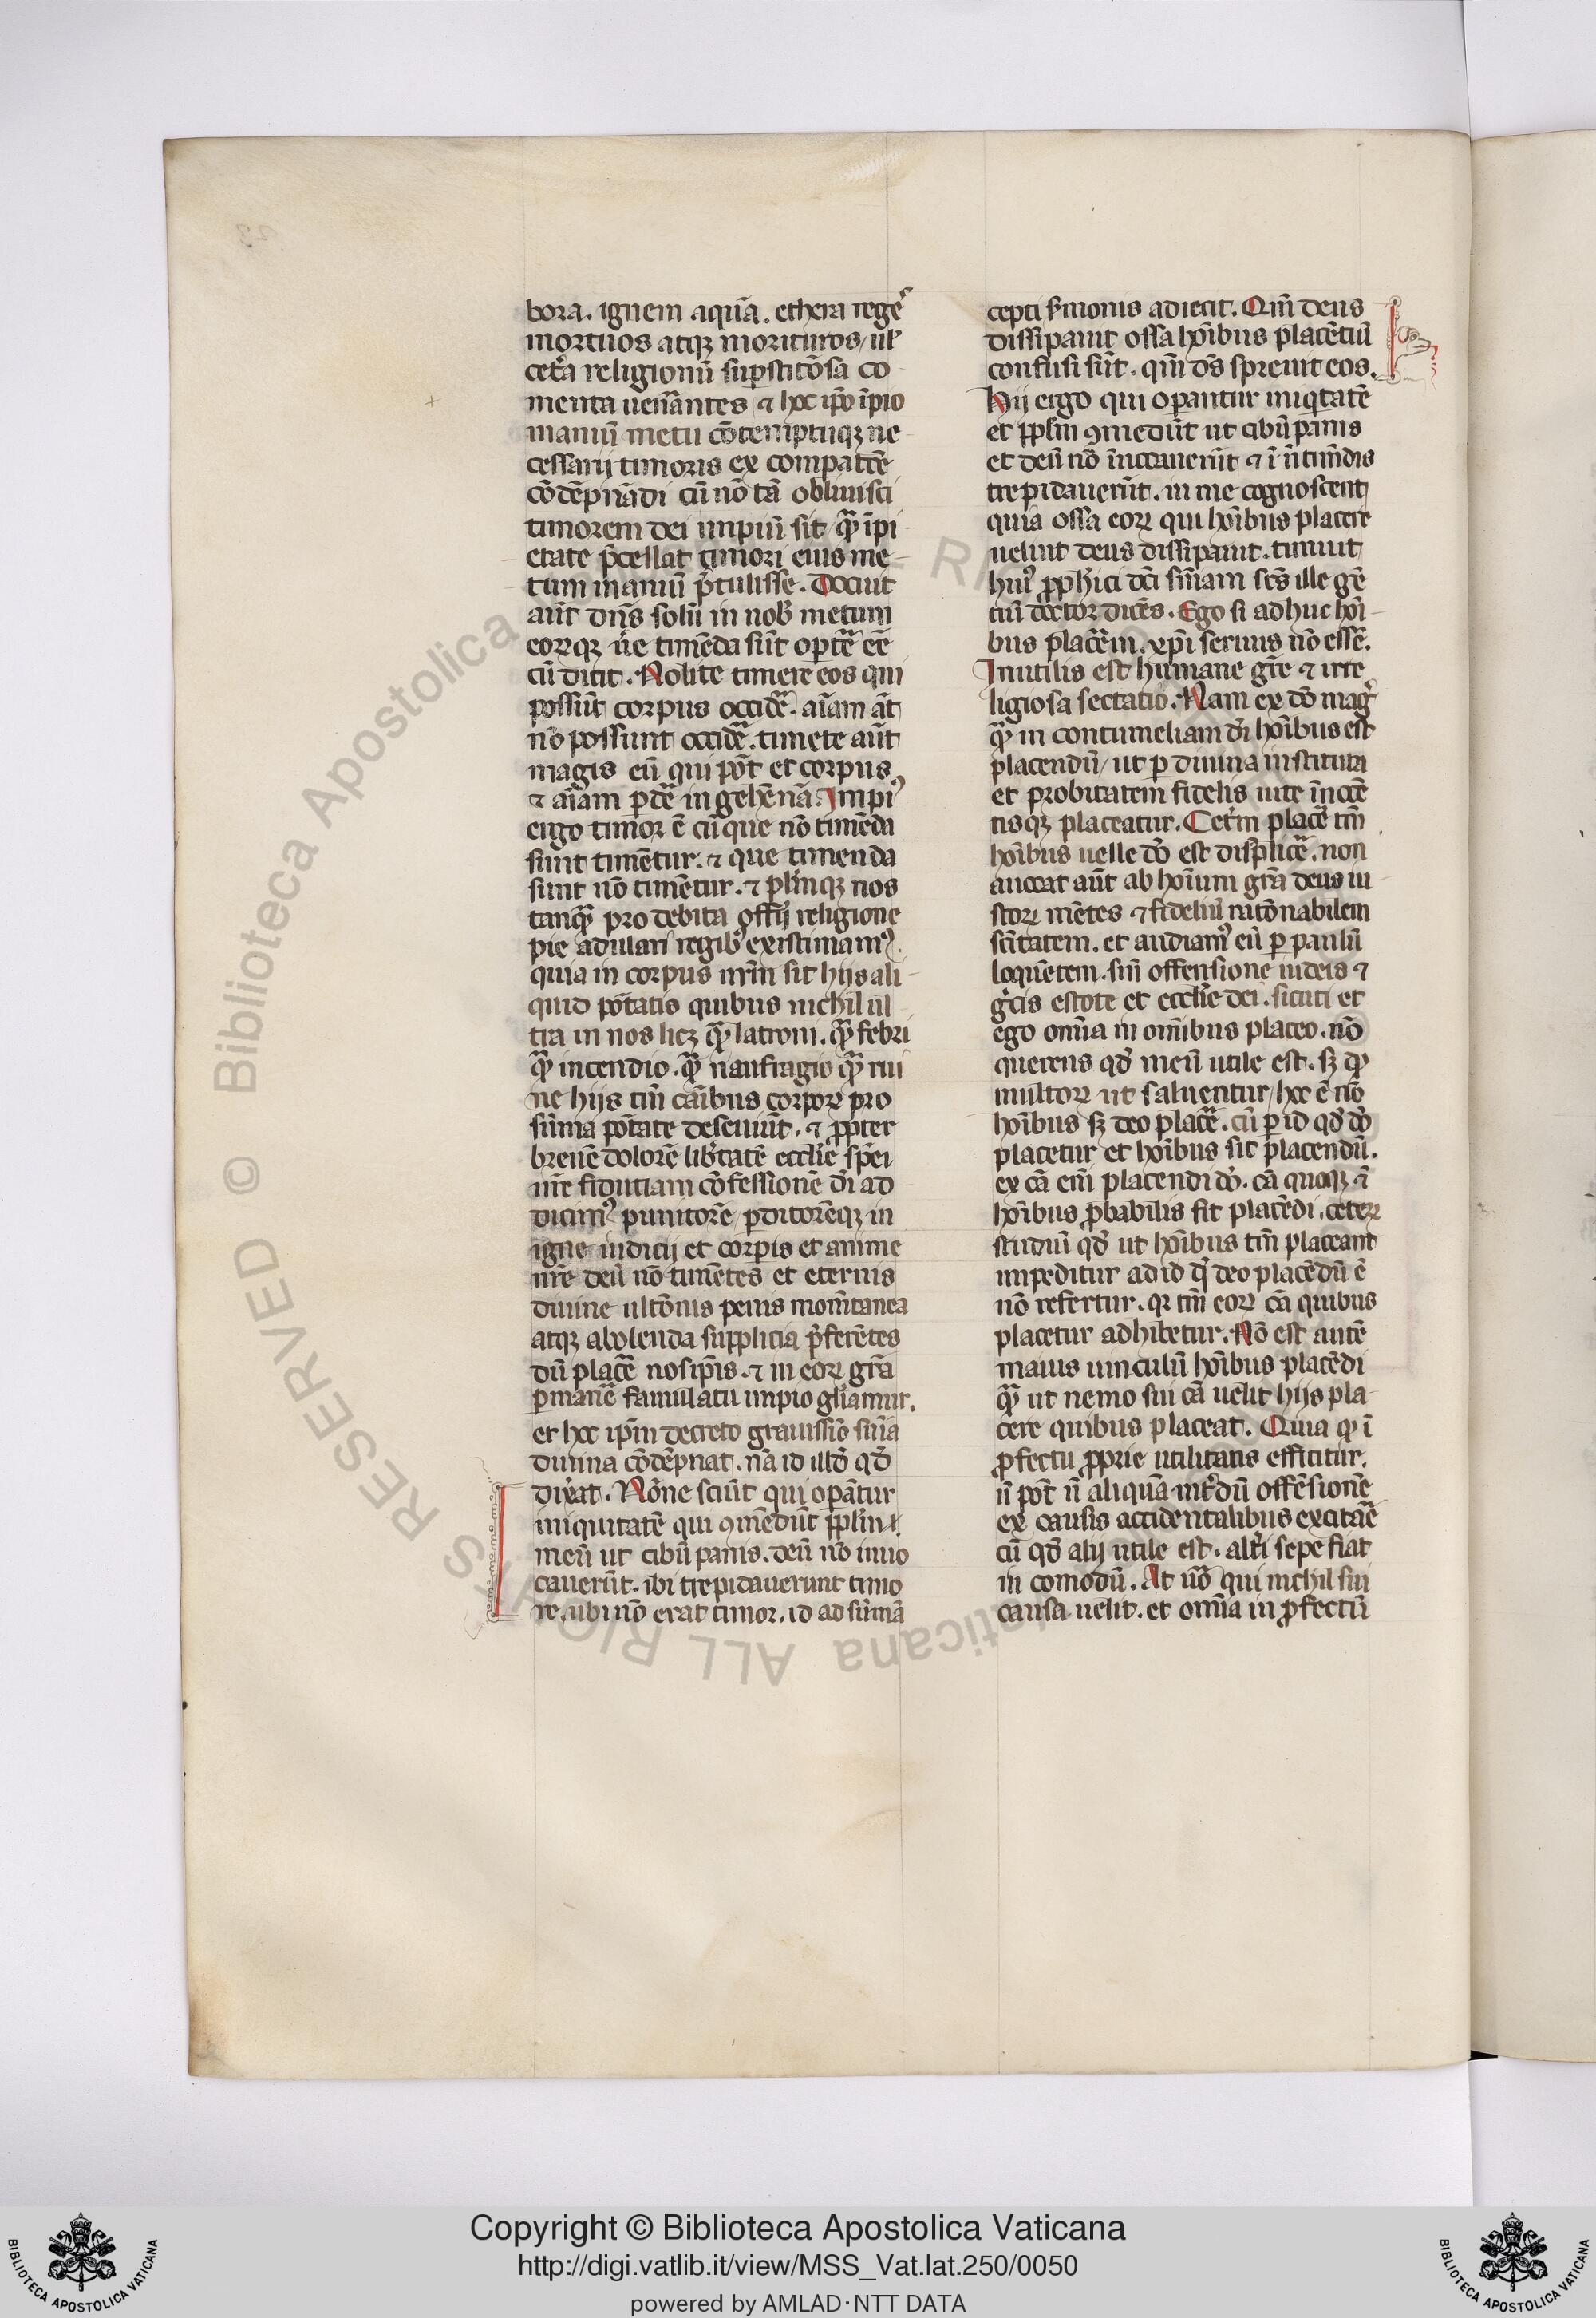 bora. ignem aquā. ethera regē
mortuos atqꝫ morituros, ul'
cet̄a religionū suꝑstitōsa co
menta uen̄antes ⁊ hoc ip̄o īpio
inaniū metu cōtemptuqꝫ ne
cessarij timoris ex comparatōe
cōdēpnādi cū nō tā obliuisci
timorem dei impiū sit q̄ꝫ īpi
etate p̄cellat timori eius me
tum inaniū p̄tulisse. Docuit
aūt dn̄s solū in nob̄ metum
eorꝝqꝫ ū̄e timēda sūt oꝑte̅ eē
cū dicit. Nolite timere eos qui
possūt corpus occide̅. aīam āt
nō possunt occide̅. timete aūt
magis eū qui pōt et corpus
⁊ aīam ꝑde̅ in gehēnā. Impiꝰ
ergo timor ē cū que nō timēda
sunt timētur. ⁊ que timenda
sunt nō timētur. ⁊ pler̄inqꝫ nos
tanq̄ꝫ pro debita officij religione
pie adulari regibꝰ existimamꝰ.
quia in corpus nr̄m sit hijs ali
quid pōtatis quibus nichil ul
tra in nos licꝫ q̄ꝫ latroni. q̄ꝫ febri
q̄ꝫ incendio. q̄ꝫ naufragio q̄ꝫ rui
ne hijs tm̄ cāibus corporꝝ pro
sūma pōtate deseuiūt. ⁊ ꝓpter
breuē dolorē lib̄tatē eccl'ie sp̄ei
nr̄e fidutiam cōfessionē dī ad
dicimꝰ punitorē ꝑditorēqꝫ in
igne iudicij et corpis et anime
nr̄e deū nō timētes et eternis
diuine ultōnis penis mom̄tanea
atqꝫ abolenda supplicia p̄ferētes
dū place̅ nosip̄is. ⁊ in eorꝝ gr̄a
ꝑmane̅ famulatu impio gl'iamur.
et hoc ip̄m decreto grauissīo sn̄ia
diuina cōdēpnat. nā id illd̄ qd̄
dix̄at. Nōne sciūt qui oꝑātur
iniquitatē qui ꝯmedūt ꝓpl'm
meū ut cibū panis. deū nō inuo
cauerūt. ibi trepidauerunt timo
re. ubi nō erat timor. id ad sūmā
cepti s̄monis adiecit. Qm̄ deus
dissipauit ossa hoībus placētiū
confusi sūt. qm̄ ds̄ spreuit eos.
Hij ergo qui oꝑantur iniqͥtatē
et ꝓpl'm ꝯmedūt ut cibū panis
et deū nō īuocauerūt ⁊ ī n̄ timēdis
trepidauerūt. in me cognoscent
quia ossa eorꝝ qui hoībus placere
uelint deus dissipauit. timuit
huiꝰ ꝓph̄ici dc̄i sn̄iam sc̄s ille gē
tiū doctor dicēs. Ego si adhuc hoī
bus placēem. xp̄i seruus nō essē.
Inutilis est humane gr̄e ⁊ irre
ligiosa sectatio. Nam ex dō mag̊
q̄ꝫ in contumeliam dī hoībus est
placendū, ut ꝑ diuina instituta
et probitatem fidelis uite īnocē
tisqꝫ placeatur. Cet̄m place̅ tm̄
hoībus uelle dō est displice̅. non
auocat aūt ab hoīum gr̄a deus iu
storꝝ mētes ⁊ fideliū ratōnabilem
sc̄itatem. et audiamꝰ eū ꝑ paulū
loquētem. sin̄ offensione iudeis ⁊
gͤcis estote et eccl'ie dei. sicuti et
ego om̄ia in om̄ibus placeo. nō
querens qd̄ meū utile est. sꝫ qd̄
multorꝝ ut saluentur, hoc ē nō
hoībus sꝫ deo place̅. cū ꝑ id qd̄ dō
placetur et hoībus sit placendū.
ex cā eni placendi dō. cā quoqꝫ ⁊
hoībus ꝓbabilis fit placēdi. ceterꝝ
studiū qd̄ ut hoībus tm̄ placeant
impeditur ad id qd̄ deo placēdū ē
nō refertur. qꝛ tm̄ eorꝝ cā quibus
placetur adhibetur. Nō est autē
maius uinculū hoībus placēdi
q̄ꝫ ut nemo sui cā uelit hijs pla
cere quibus placeat. Quia qd̄ ī
ꝓfectu ꝓprie utilitatis efficitur.
n̄ pōt n̄ aliquā int̄dū offēsionē
ex causis accidentalibus excita̅e
cū qd̄ alij utile est. alt̄i sepe fiat
in comodū. At uō qui nichil sui
causa uelit. et om̄ia in ꝓfectū
Copyright © Biblioteca Apostolica Vaticana
http://digi.vatlib.it/view/MSS_Vat.lat.250/0050
powered by AMLAD·NTT DATA